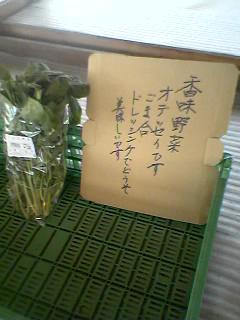 香味野菜
オテッセイです
ごま合
ドレッシングでどうぞ
美味しいです